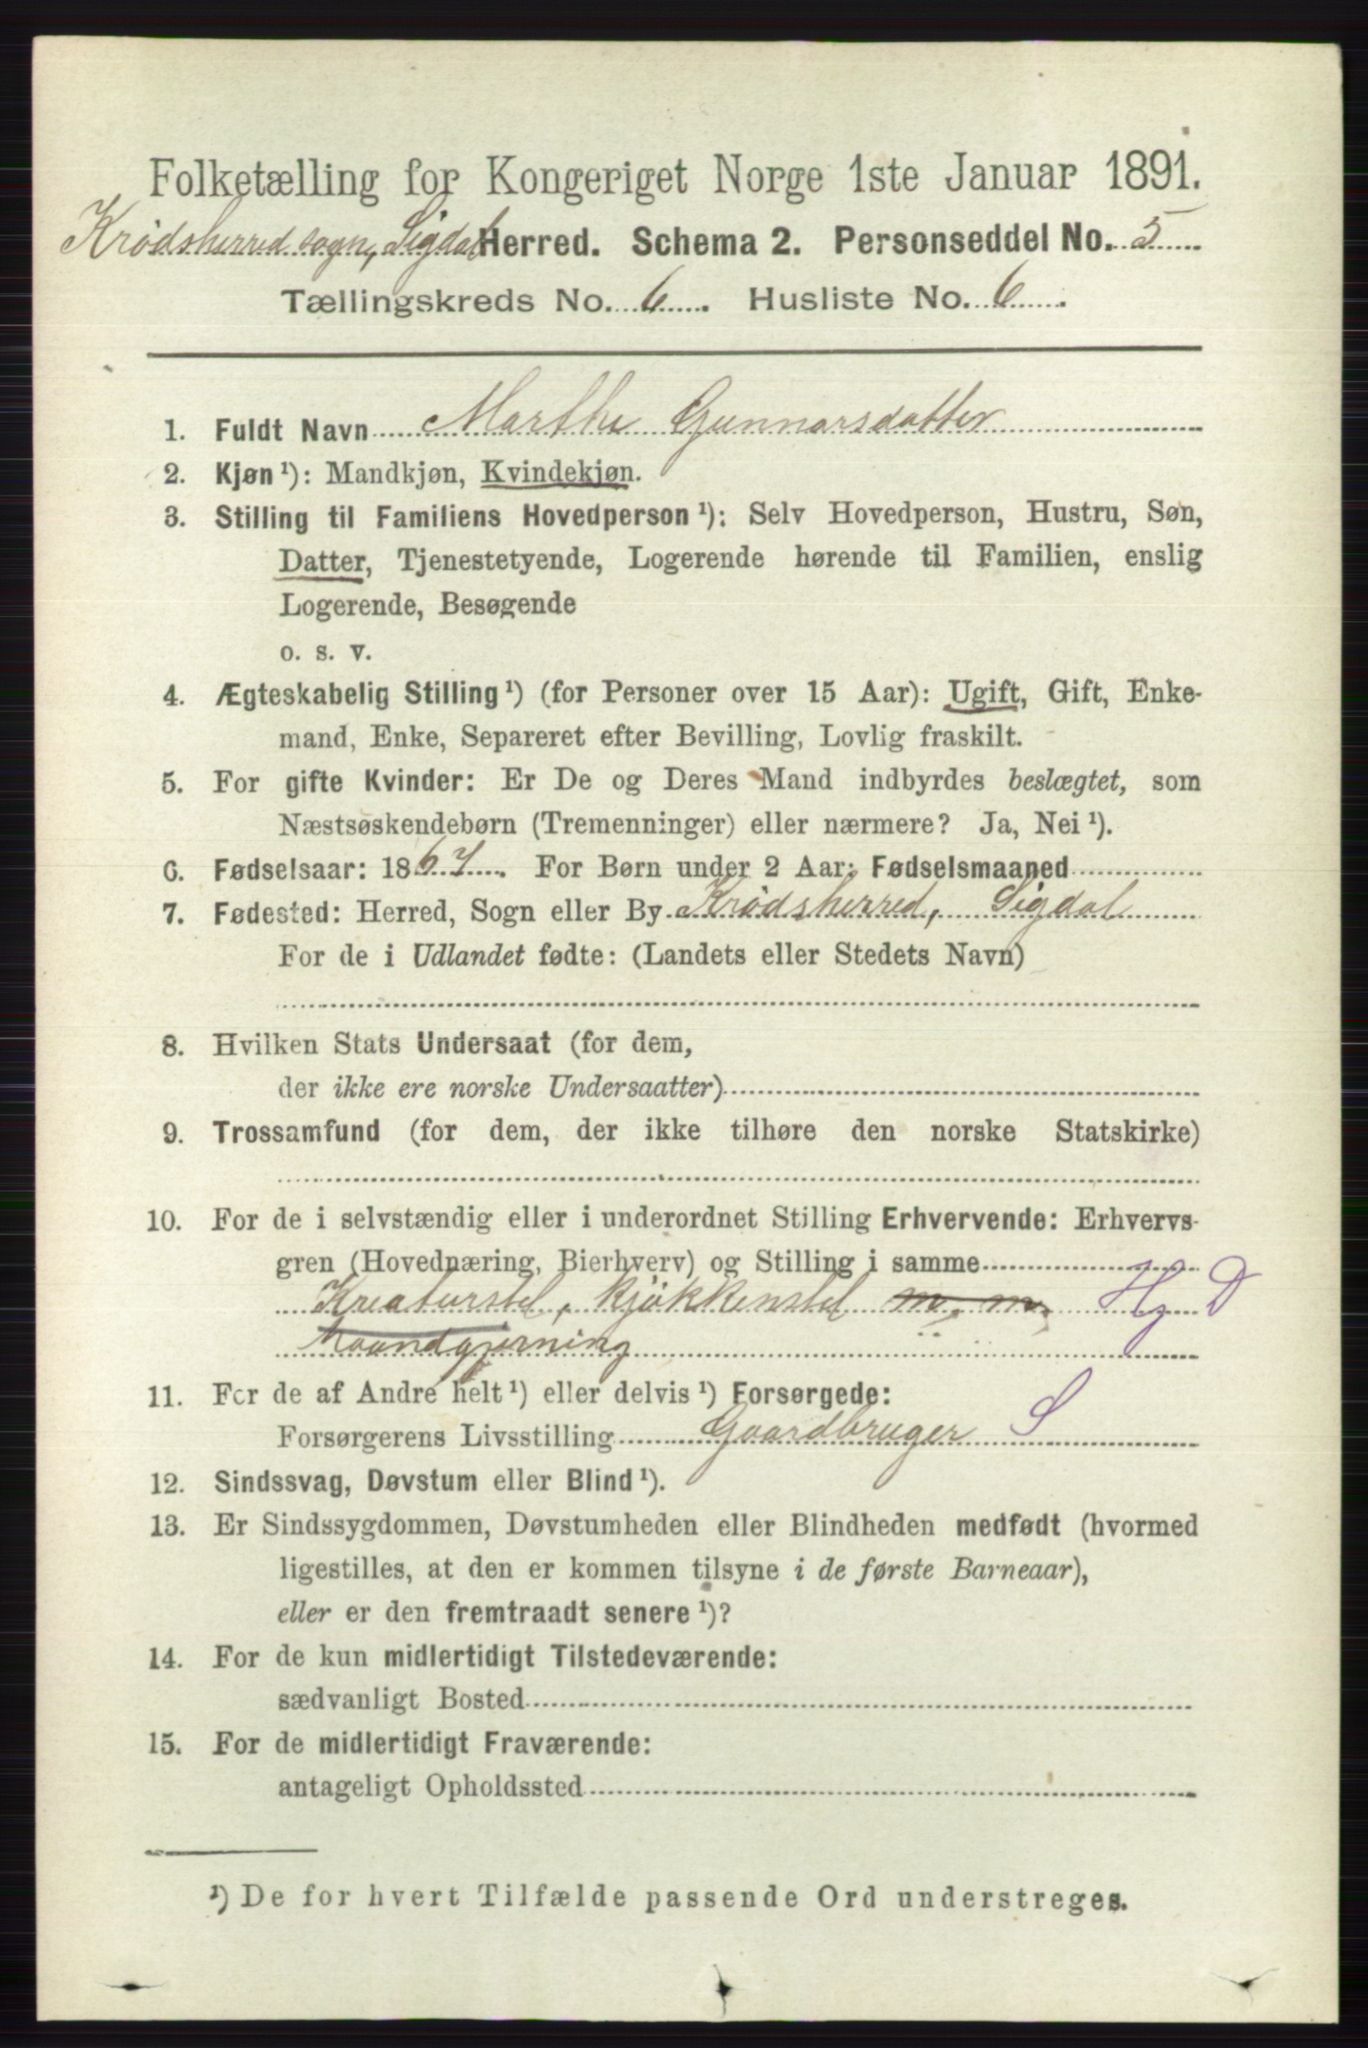 Folketælling for Kongeriget Norge 1ste Januar 1891.
Krødsherred sogn, Sigdal Herred. Schema 2. Personseddel No. 5
Tællingskreds No. 6. Husliste No. 6.
1. Fuldt Navn Marthe Gunnarsdatter
2. Kjøn ¹): Mandkjøn, Kvindekjøn.
3. Stilling til Familiens Hovedperson ¹): Selv Hovedperson, Hustru, Søn,
Datter, Tjenestetyende, Logerende hørende til Familien, enslig
Logerende, Besøgende
o. s. v.
4. Ægteskabelig Stilling ¹) (for Personer over 15 Aar): Ugift, Gift, Enke-
mand, Enke, Separeret efter Bevilling, Lovlig fraskilt.
5. For gifte Kvinder: Er De og Deres Mand indbyrdes beslægtet, som
Næstsøskendebørn (Tremenninger) eller nærmere? Ja, Nei ¹).
6. Fødselsaar: 1867. For Børn under 2 Aar: Fødselsmaaned
7. Fødested: Herred, Sogn eller By Krødsherred, Sigdal
For de i Udlandet fødte: (Landets eller Stedets Navn)
8. Hvilken Stats Undersaat (for dem,
der ikke ere norske Undersaatter)
9. Trossamfund (for dem, der ikke tilhøre den norske Statskirke)
10. For de i selvstændig eller i underordnet Stilling Erhvervende: Erhvervs-
gren (Hovednæring, Bierhverv) og Stilling i samme
Kreaturstel, kjøkkenstel m. m. Hj D
haandgjerning
11. For de af Andre helt ¹) eller delvis ¹) Forsørgede:
Forsørgerens Livsstilling Gaardbruger S
12. Sindssvag, Døvstum eller Blind ¹).
13. Er Sindssygdommen, Døvstumheden eller Blindheden medfødt (hvormed
ligestilles, at den er kommen tilsyne i de første Barneaar),
eller er den fremtraadt senere ¹)?
14. For de kun midlertidigt Tilstedeværende:
sædvanligt Bosted
15. For de midlertidigt Fraværende:
antageligt Opholdssted
¹) De for hvert Tilfælde passende Ord understreges.